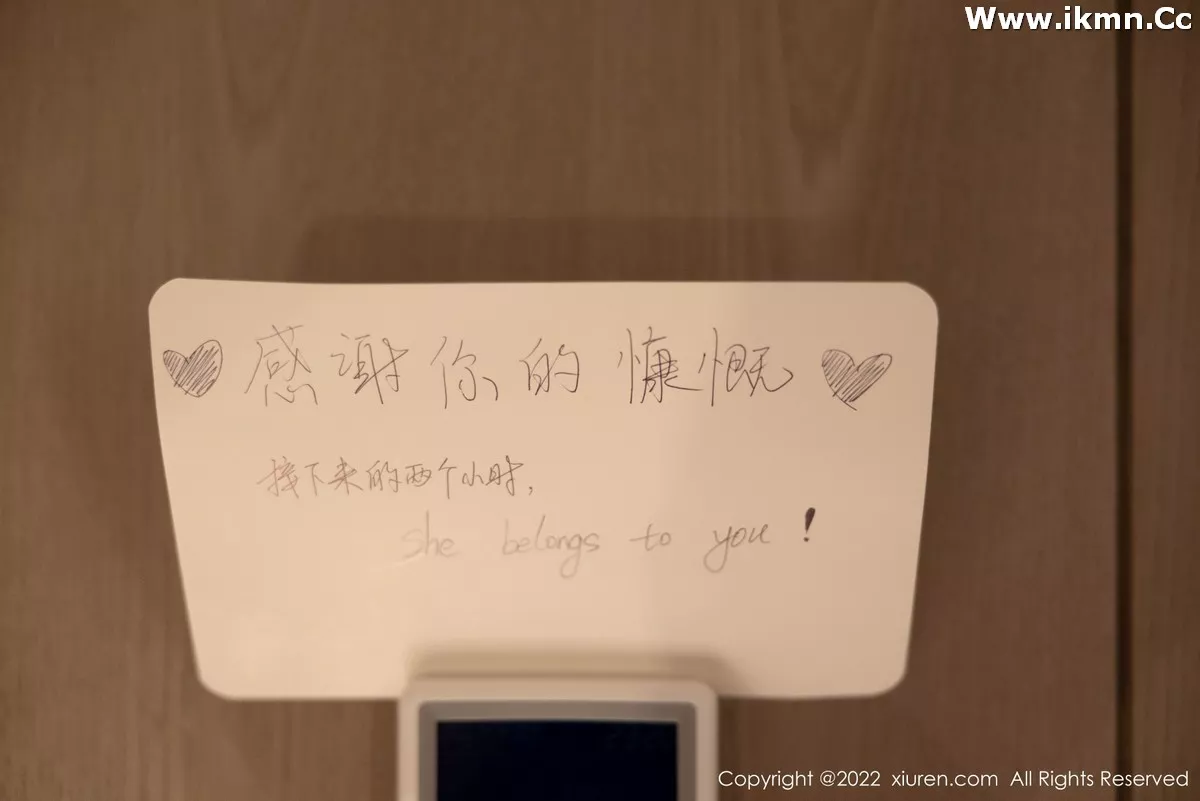 Www.ikmn.Cc
感谢你的慷慨
接下来的两个小时,
she belongs to you!
Copyright @2022 xiuren.com All Rights Reserved